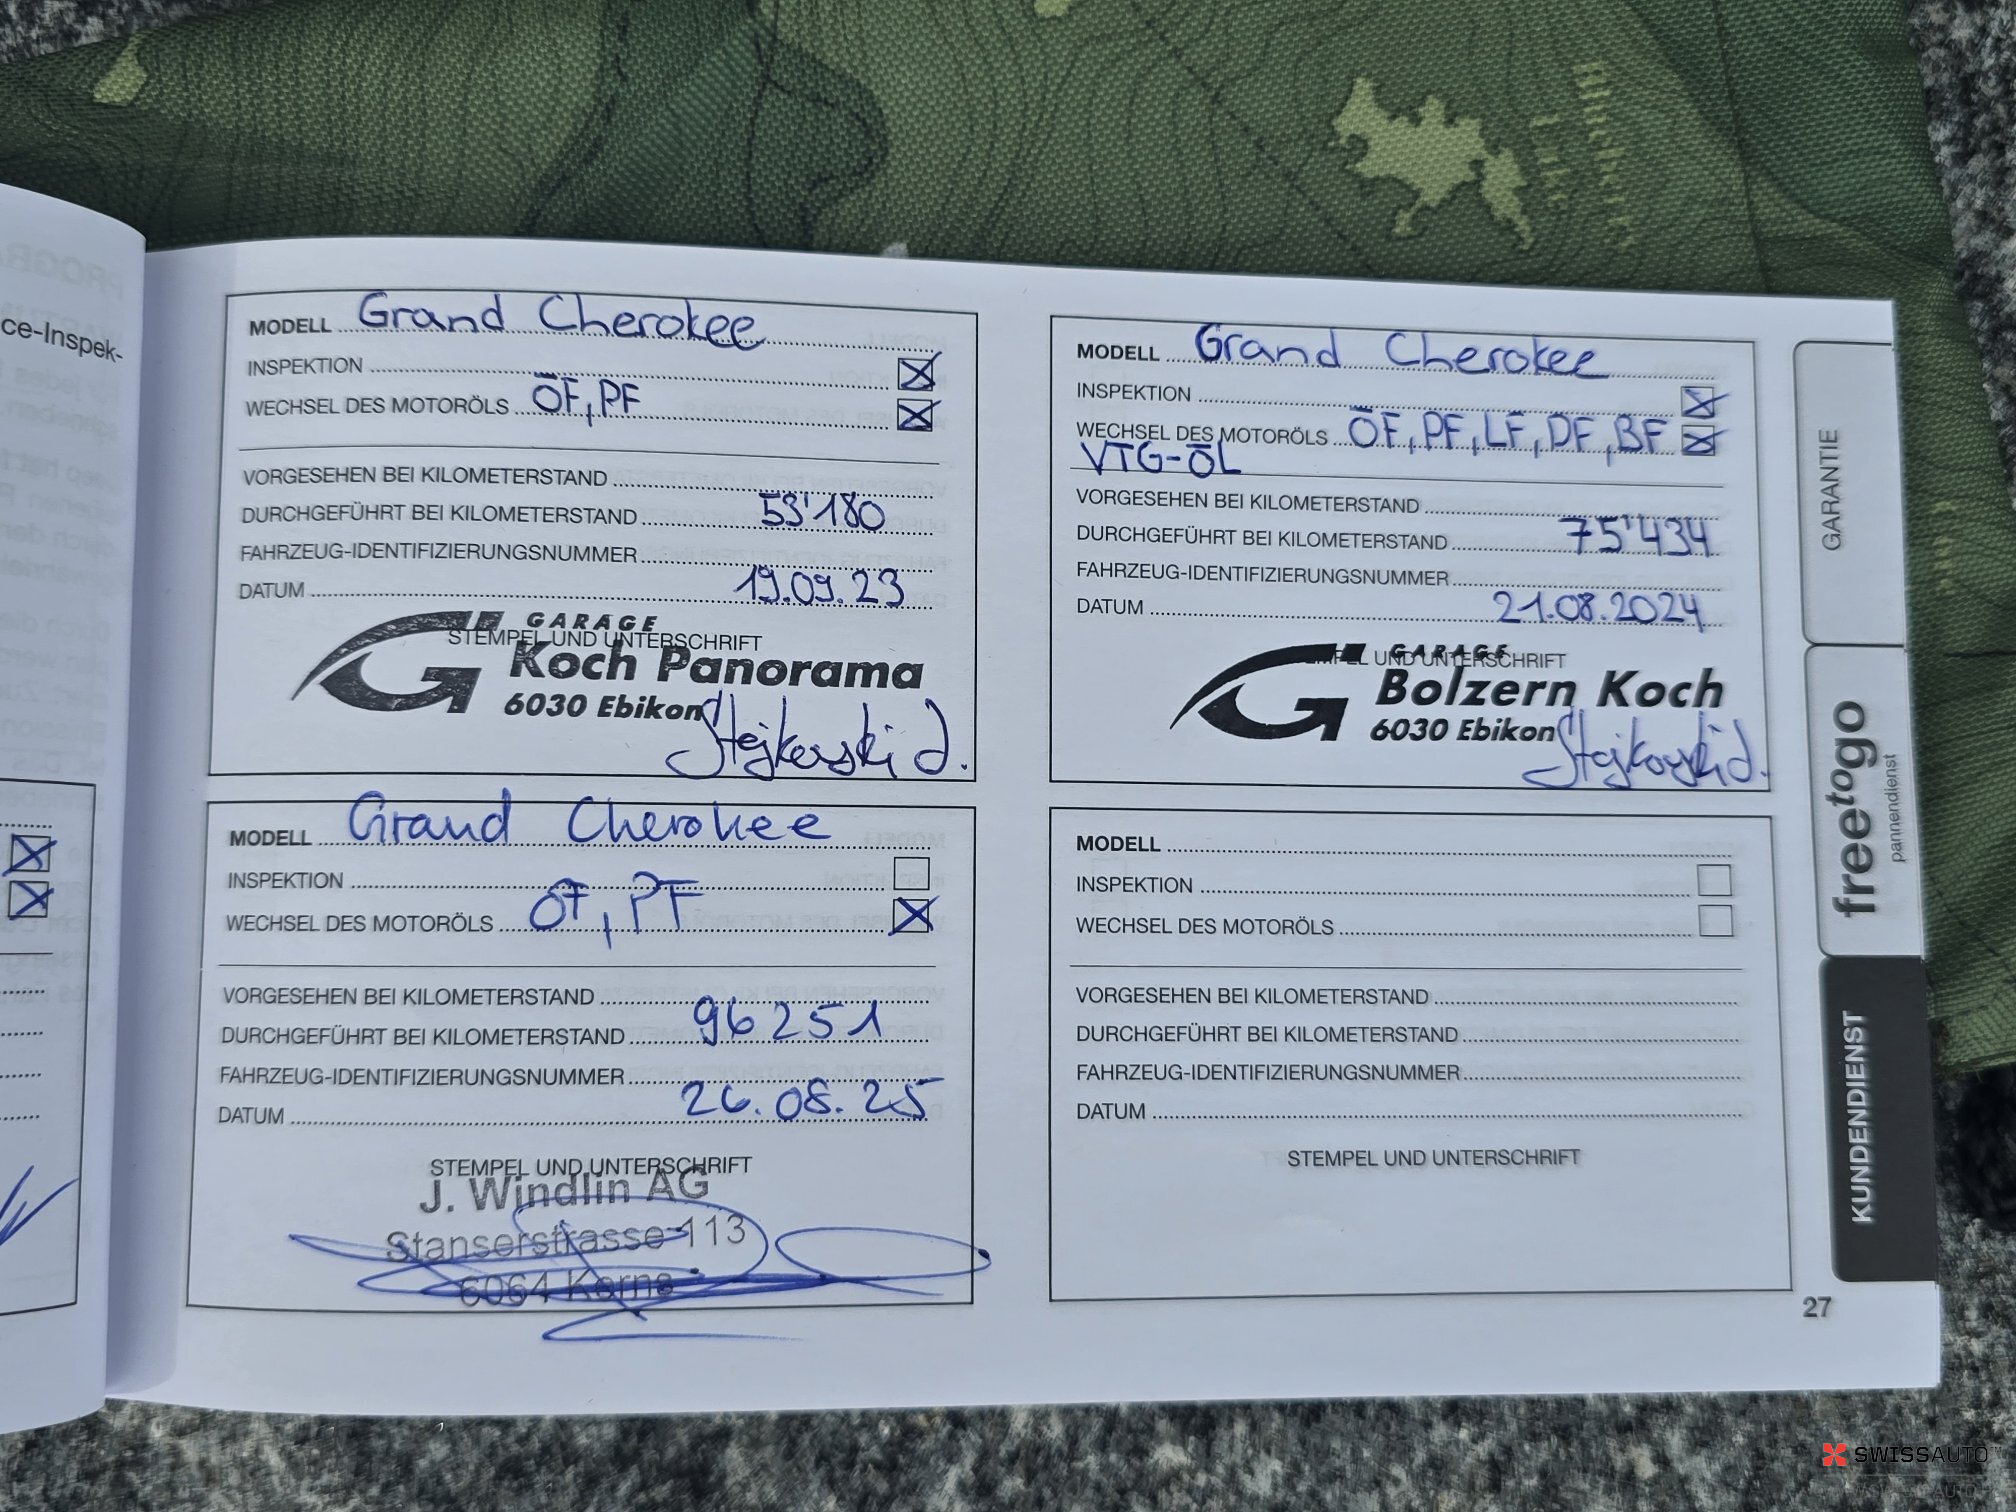 ce-Inspek-
MODELL Grand Cherokee
INSPEKTION
WECHSEL DES MOTORÖLS ÖF, PF
VORGESEHEN BEI KILOMETERSTAND
DURCHGEFÜHRT BEI KILOMETERSTAND 53'180
FAHRZEUG-IDENTIFIZIERUNGSNUMMER
DATUM 19.09.23
STEMPEL UND UNTERSCHRIFT
GARAGE
Koch Panorama
6030 Ebikon
Stojkovski d.
MODELL Grand Cherokee
INSPEKTION
WECHSEL DES MOTORÖLS ÖF, PF, LF, DF, BF
VTG-ÖL
VORGESEHEN BEI KILOMETERSTAND
DURCHGEFÜHRT BEI KILOMETERSTAND 75'434
FAHRZEUG-IDENTIFIZIERUNGSNUMMER
DATUM 21.08.2024
STEMPEL UND UNTERSCHRIFT
GARAGE
Bolzern Koch
6030 Ebikon
Stojkovski d.
MODELL Grand Cherokee
INSPEKTION
WECHSEL DES MOTORÖLS ÖF, PF
VORGESEHEN BEI KILOMETERSTAND
DURCHGEFÜHRT BEI KILOMETERSTAND 96251
FAHRZEUG-IDENTIFIZIERUNGSNUMMER
DATUM 26.08.25
STEMPEL UND UNTERSCHRIFT
J. Windlin AG
Stanserstrasse 113
6064 Kerns
MODELL
INSPEKTION
WECHSEL DES MOTORÖLS
VORGESEHEN BEI KILOMETERSTAND
DURCHGEFÜHRT BEI KILOMETERSTAND
FAHRZEUG-IDENTIFIZIERUNGSNUMMER
DATUM
STEMPEL UND UNTERSCHRIFT
GARANTIE
freetogo
pannendienst
KUNDENDIENST
27
SWISSAUTO